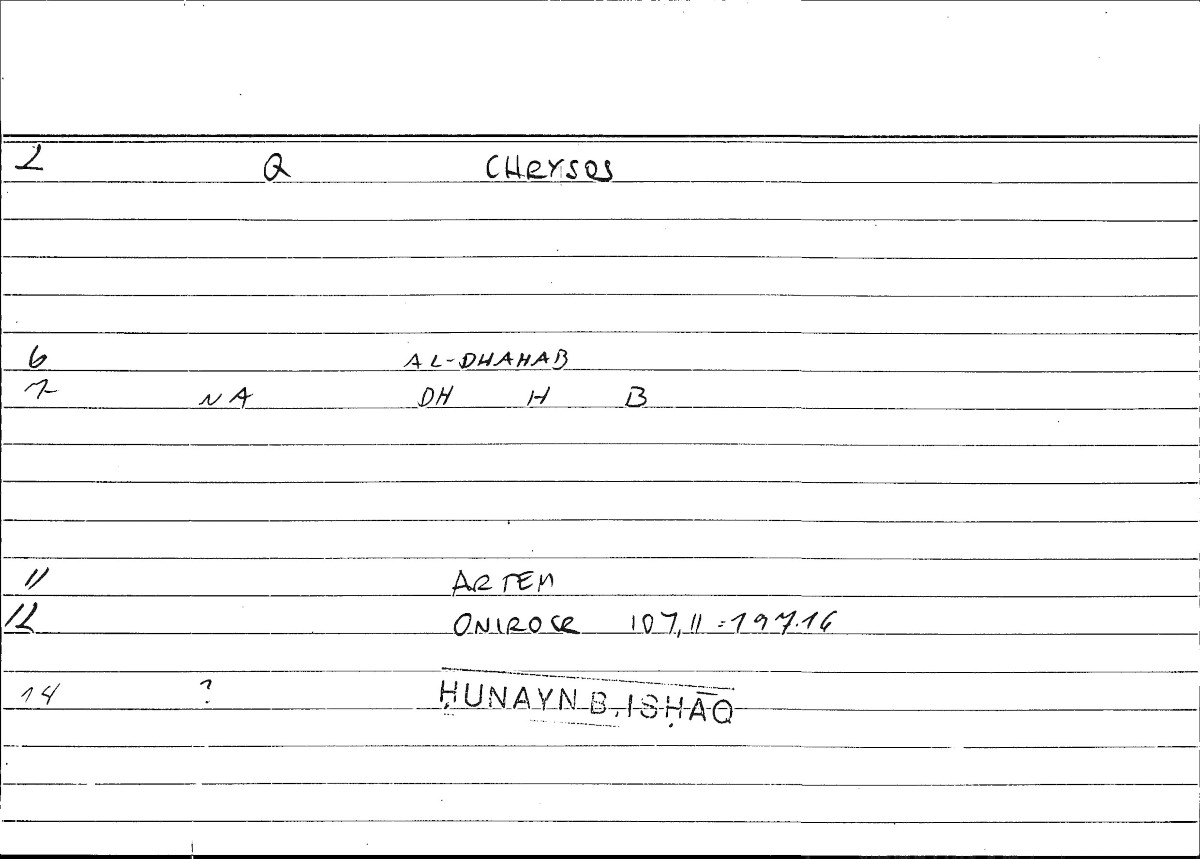 2 Q CHRYSOS
6 AL-DHAHAB
7 NA DH H B
11 ARTEM
12 ONIROCR 107,11 = 197.16
14 ? ḤUNAYN B. ISḤĀQ